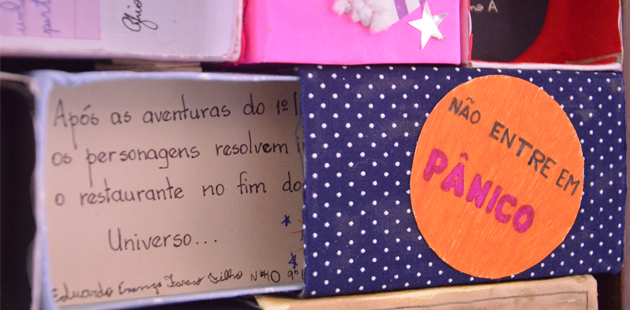 Após as aventuras do 1º
os personagens resolvem
o restaurante no fim do
Universo...
Eduardo Filho Nº10 9º
NÃO ENTRE EM
PÂNICO
A